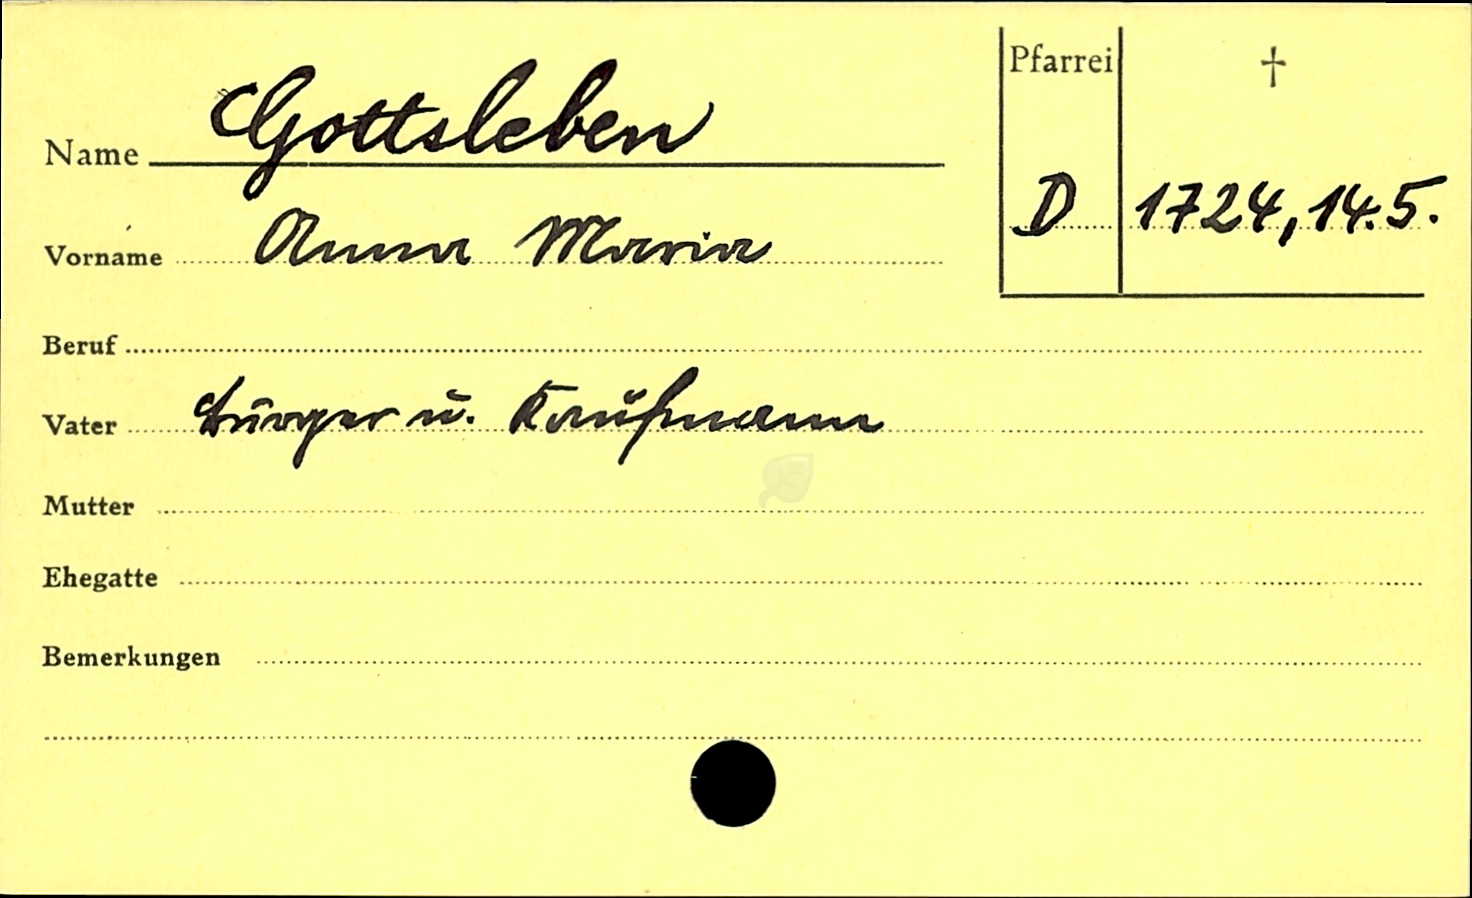 Pfarrei †
Name Gottsleben
D 1724, 14.5.
Vorname Anna Maria
Beruf
Vater Bürger u. Kaufmann
Mutter
Ehegatte
Bemerkungen